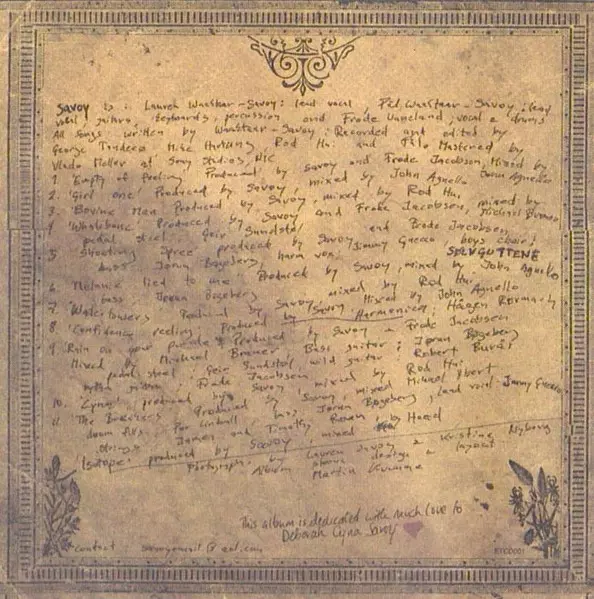 Savoy is : Lauren Waaktaar-Savoy : lead vocal, Pål Waaktaar-Savoy : lead
vocal, guitars, keyboards, percussion and Frode Unneland, vocal & drums
All songs written by Waaktaar-Savoy : Recorded and edited by
George Tandero, Mike Hartung, Rod Hui and Filo Mastered by
Vlado Meller at Sony Studios, NYC
1. 'Empty of feeling' Produced by Savoy and Frode Jacobsen, Mixed by John Agnello
2. 'Girl one' Produced by Savoy, mixed by Rod Hui
3. 'Bovine Man' Produced by Savoy and Frode Jacobsen, mixed by Michael
4. 'Whalebone' Produced by Savoy and Frode Jacobsen,
pedal steel : Geir Sundstøl
5. 'Shooting Spree' produced by Savoy Jimmy Gnecco, boys choir :
bass : Jørun Bøgeberg, harm. vox : SØLVGUTTENE
6. 'Melanie lied to me' Produced by Savoy, mixed by John Agnello
bass Jørun Bøgeberg
7. 'Watertowers' Produced by Savoy, Mixed by John Agnello
8. 'Confidency reeling' Produced by Savoy Harmonica : Håagen
9. 'Rain on your parade' Produced by Savoy & Frode Jacobsen
Mixed by Michael Brauer Bass guitar : Jørun Bøgeberg
pedal steel : Geir Sundstøl wild guitar : Robert Burås
guitar : Frode Jacobsen
10. 'Cynad' produced by Savoy mixed by Rod Hui
11. 'The Breakers' Produced by Savoy, mixed Michael Ilbert
drum fills : Per Lindvall, bass Jørun Bøgeberg, lead vocal : Jimmy Gnecco
strings : James and Timothy by Head
'Isotope' produced by Savoy, mixed
Photographs by Lauren Savoy & Kristine Nyborg
Album design & layout
Martin Kvamme
This album is dedicated with much love to
Deborah Lyna Savoy
contact : savoyemail@aol.com
EYCD001